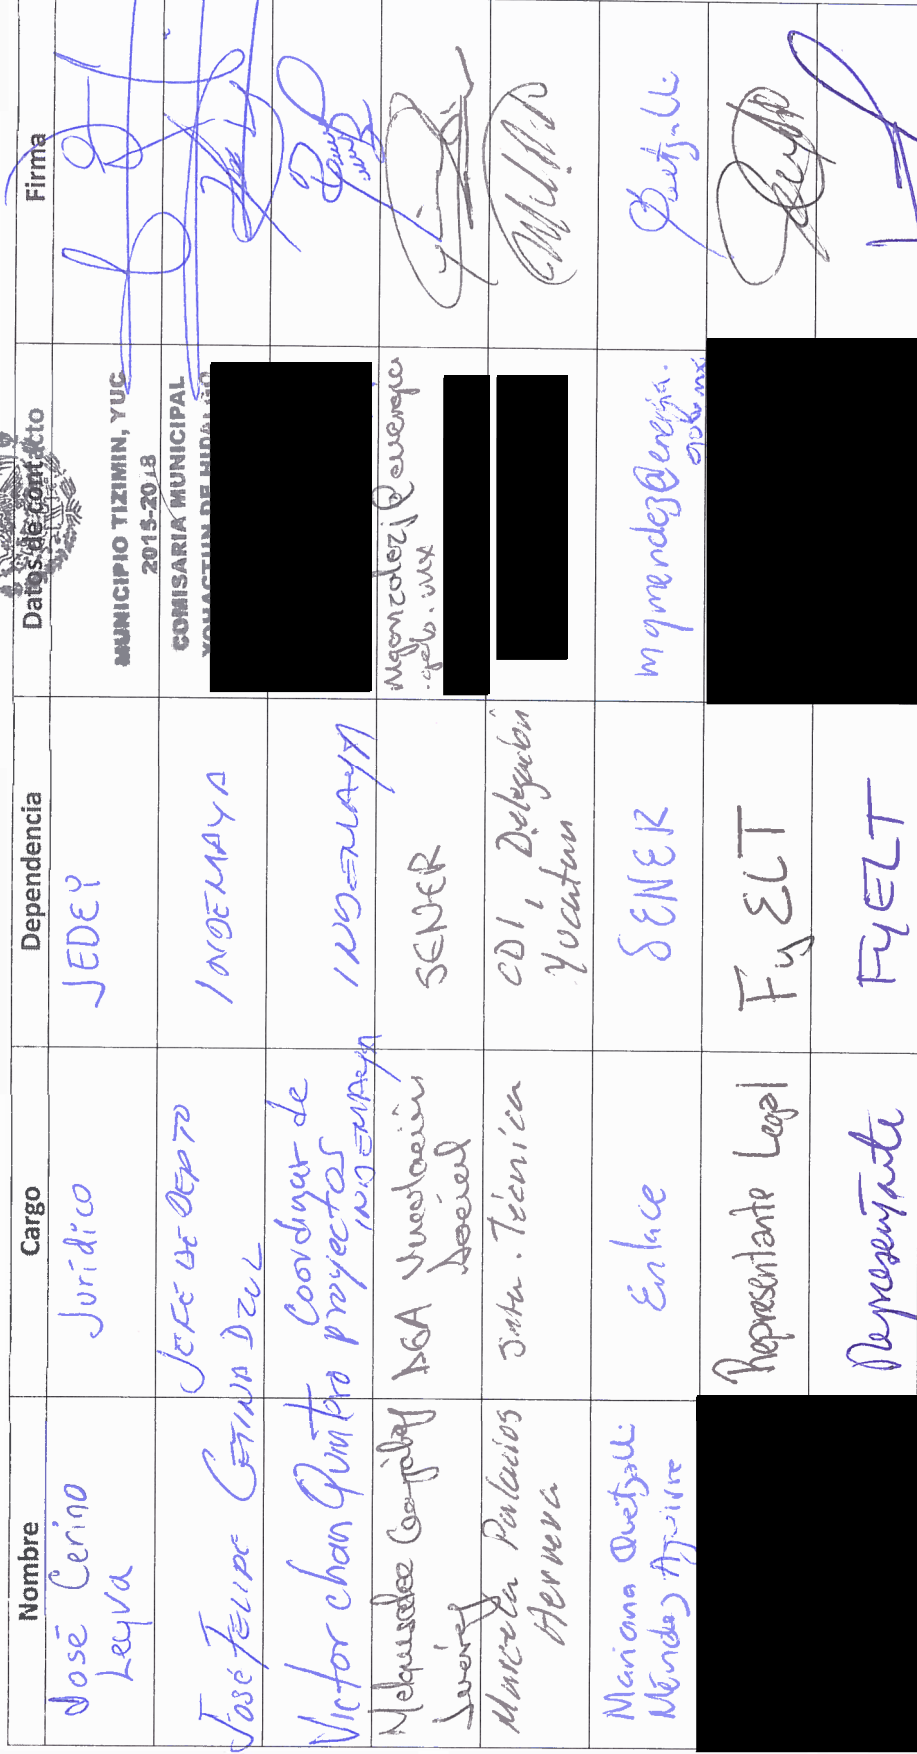 Nombre
Cargo
Dependencia
Datos de contacto
Firma
José Cerino
Leyva
Jurídico
JEDEY
MUNICIPIO TIZIMIN, YUC
2015-2018
COMISARIA MUNICIPAL
José Felipe Cetina Dzul
JEFE DE DEPTO
INDEMAYA
Victor chan Quintero
Coordinador de
proyectos
INDEMAYA
INDEMAYA
Melquisedec González
Juárez
DGA Vinculación
Social
SENER
mgonzalezj@energia
.gob.mx
Marcela Palacios
Herrera
Técnica
CDI, Delegación
Yucatán
Mariana Quetzalli
Méndez Aguirre
Enlace
SENER
mqmendez@energia.
gob.mx
Quetzalli
Representante Legal
FyELT
Representante
FyELT